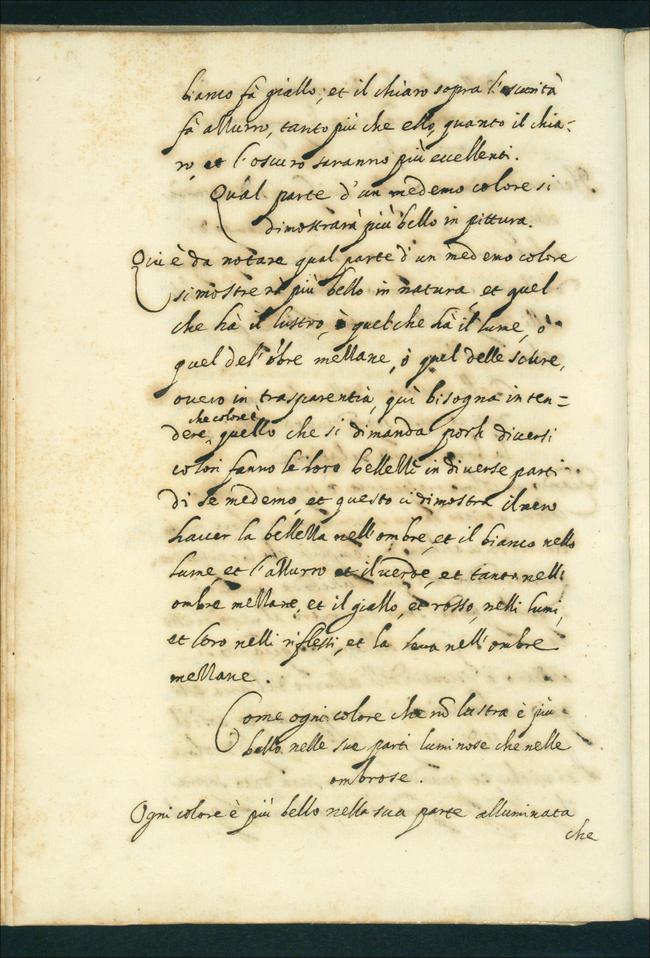 bianco fà giallo; et il chiaro sopra l'oscurità
fà azzurro, tanto più che ello, quanto il chia-
ro, et l'oscuro saranno più eccellenti.
Qual parte d'un medemo colore si
dimostrarà più bello in pittura.
Qui è da notare qual parte d'un medemo colore
si mostrerà più bello in natura, et quel
che hà il lustro, ò quel che hà il lume, ò
quel del'õbre mezzane, ò quel delle scure,
overo in trasparentia, quì bisogna inten=
che colore è
dere, quello che si dimanda perch diversi
colori fanno le loro bellezze in diverse parti
di sè medemo, et questo ci dimostra il nero
haver la bellezza nell'ombre, et il bianco nello
lume, et l'azzurro et il verde, et tanè nelli
ombre mezzane, et il giallo, et rosso, nelli lumi,
et l'oro nelli riflessi, et la lacca nell'ombre
mezzane.
Come ogni colore che nõ lustra è più
bello nelle sue parti luminose che nelle
ombrose.
Ogni colore è più bello nella sua parte alluminata
che